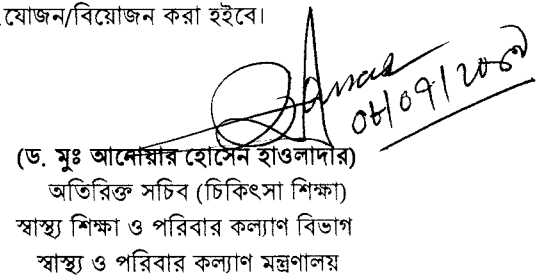 যোজন/বিয়োজন করা হইবে।
(ড. মুঃ আনোয়ার হোসেন হাওলাদার)
অতিরিক্ত সচিব (চিকিৎসা শিক্ষা)
স্বাস্থ্য শিক্ষা ও পরিবার কল্যাণ বিভাগ
স্বাস্থ্য ও পরিবার কল্যাণ মন্ত্রণালয়